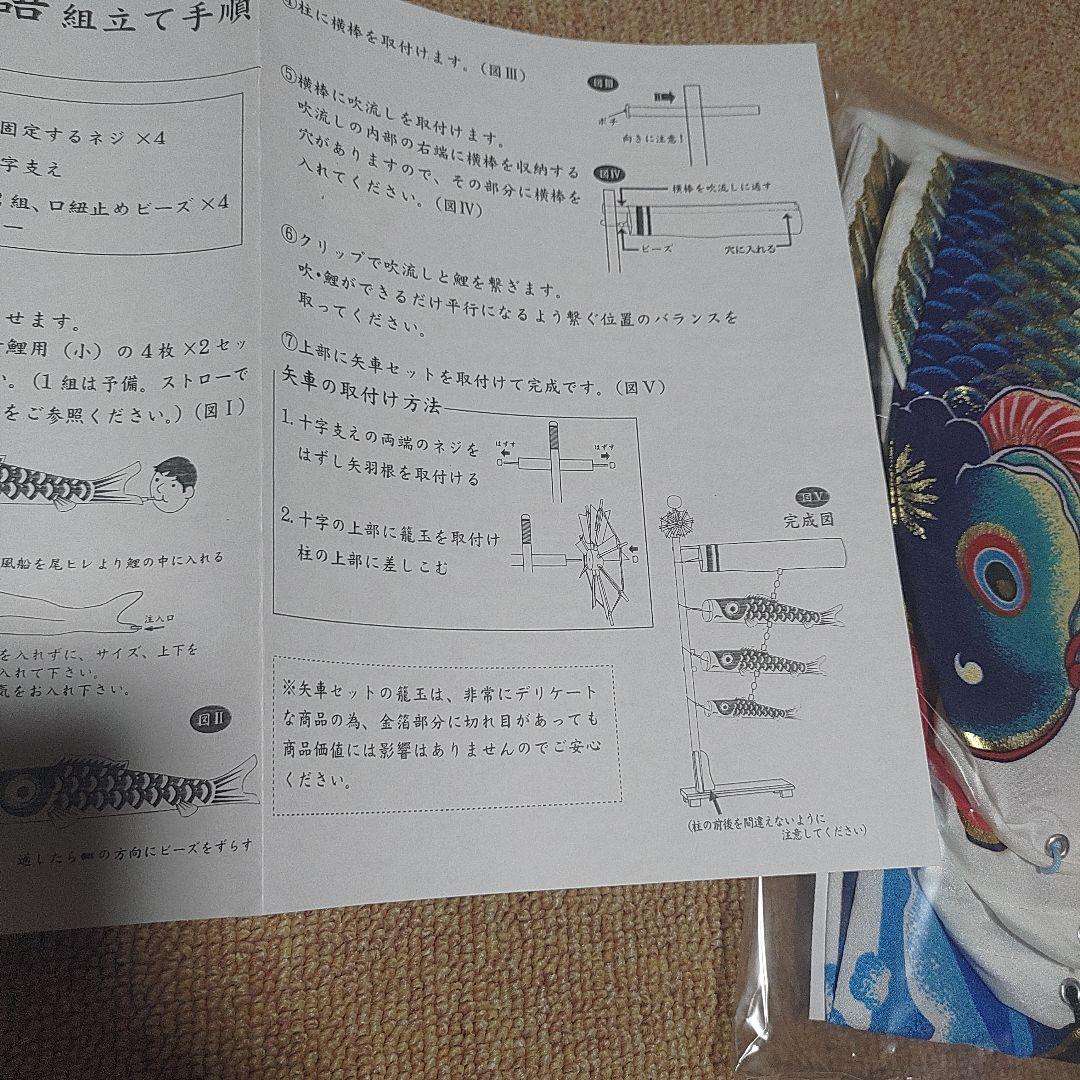 組立て手順
固定するネジ ×4
字支え
組、口紐止めビーズ ×4
ー
せます。
鯉用（小）の4枚×2セッ
い。（1組は予備。ストローで
をご参照ください。）（図Ⅰ）
風船を尾ヒレより鯉の中に入れる
注入口
を入れずに、サイズ、上下を
入れて下さい。
気をお入れ下さい。
図Ⅱ
通したら の方向にビーズをずらす
④柱に横棒を取付けます。（図Ⅲ）
⑤横棒に吹流しを取付けます。
吹流しの内部の右端に横棒を収納する
穴がありますので、その部分に横棒を
入れてください。（図Ⅳ）
図Ⅲ
ポチ
向きに注意！
図Ⅳ
横棒を吹流しに通す
ビーズ
穴に入れる
⑥クリップで吹流しと鯉を繋ぎます。
吹・鯉ができるだけ平行になるよう繋ぐ位置のバランスを
取ってください。
⑦上部に矢車セットを取付けて完成です。（図Ⅴ）
矢車の取付け方法
1.十字支えの両端のネジを
はずし矢羽根を取付ける
はずす
はずす
2.十字の上部に籠玉を取付け
柱の上部に差しこむ
図Ⅴ
完成図
(柱の前後を間違えないように
注意してください)
※矢車セットの籠玉は、非常にデリケート
な商品の為、金箔部分に切れ目があっても
商品価値には影響はありませんのでご安心
ください。